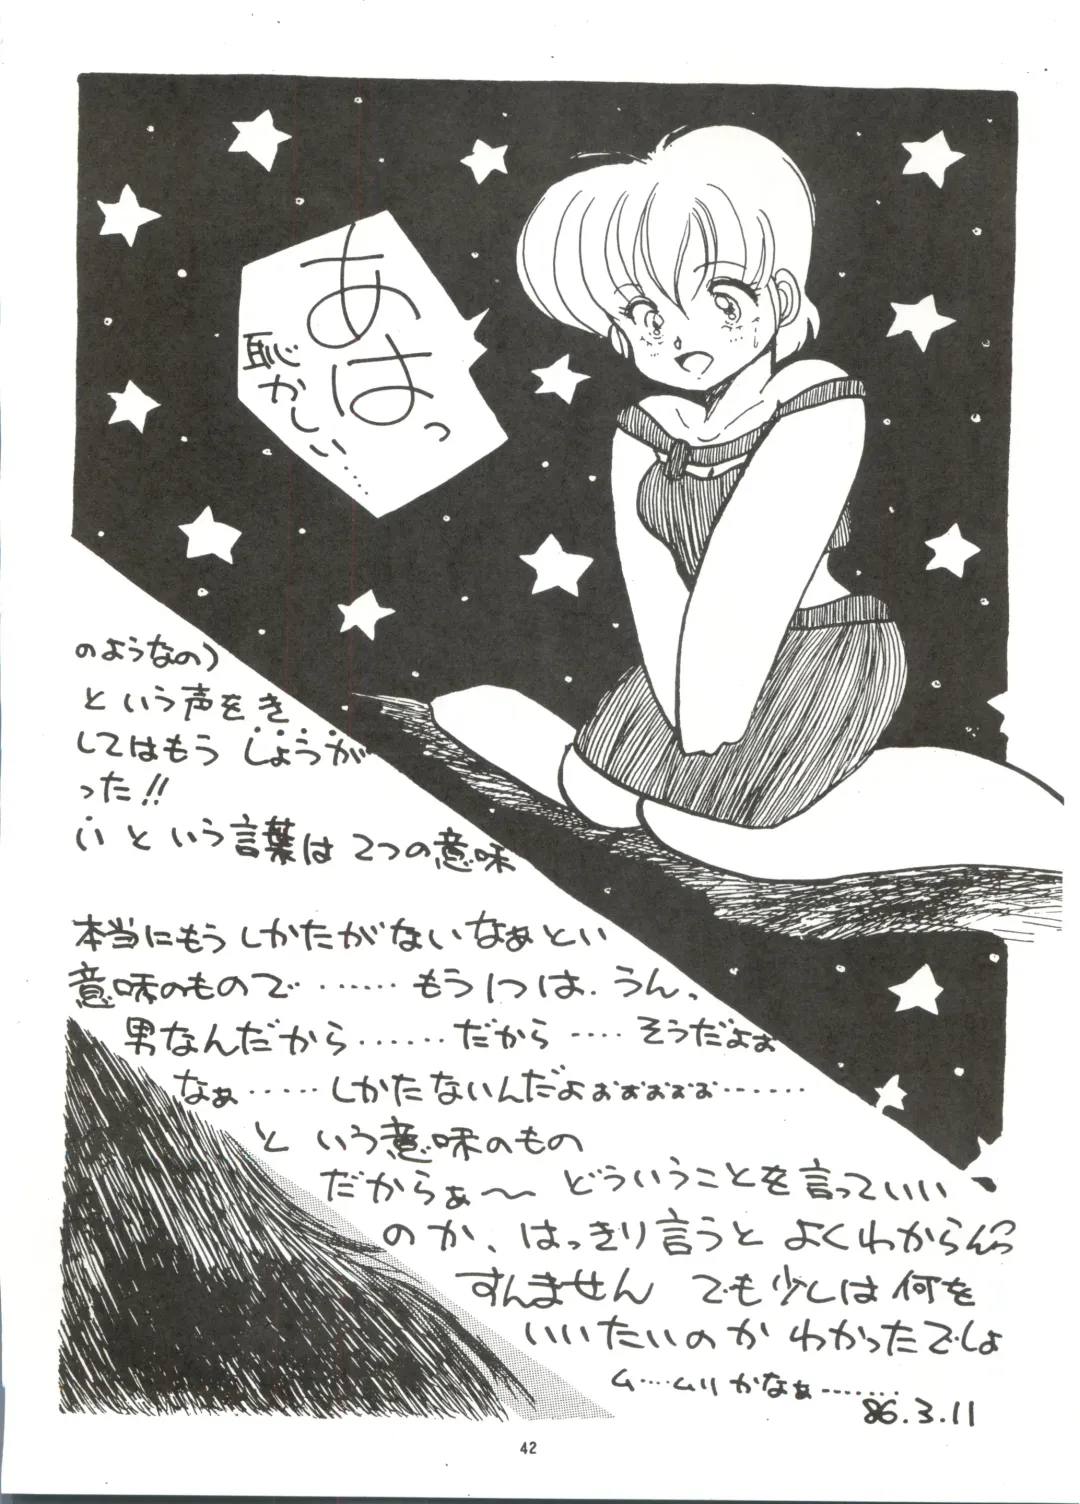 あはっ
恥かしい……
のようなの)
という声をき
してはもうしょうが
った!!
いという言葉は2つの意味
本当にもうしかたがないなぁとい
意味のもので……もう1つは.うん、
男なんだから……だから…そうだよぉ
なぁ……しかたないんだよぉぉぉぉぉ……
という意味のもの
だからぁ〜どういうことを言っていい
のか、はっきり言うとよくわからんっ
すんませんでも少しは何を
いいたいのかわかったでしょ
ム…ムリかなぁ……
86.3.11
42